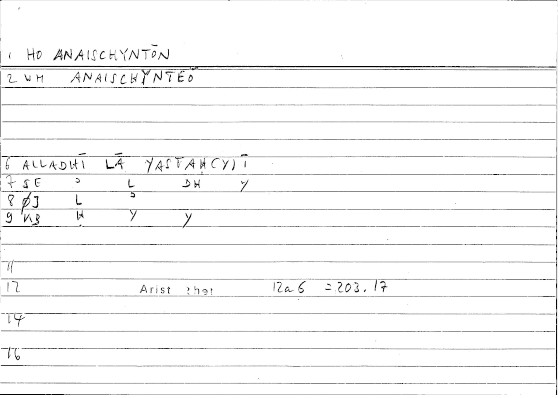 1 HO ANAISCHYNTŌN
2 WH ANAISCHYNTEŌ
6 ALLADHĪ LĀ YASTAḤ(Y)Ī
7 SE ʾ L DH Y
8 ØJ L ʾ
9 KB Ḥ Y Y
11
12 Arist rhet 12a6 = 203.17
14
16